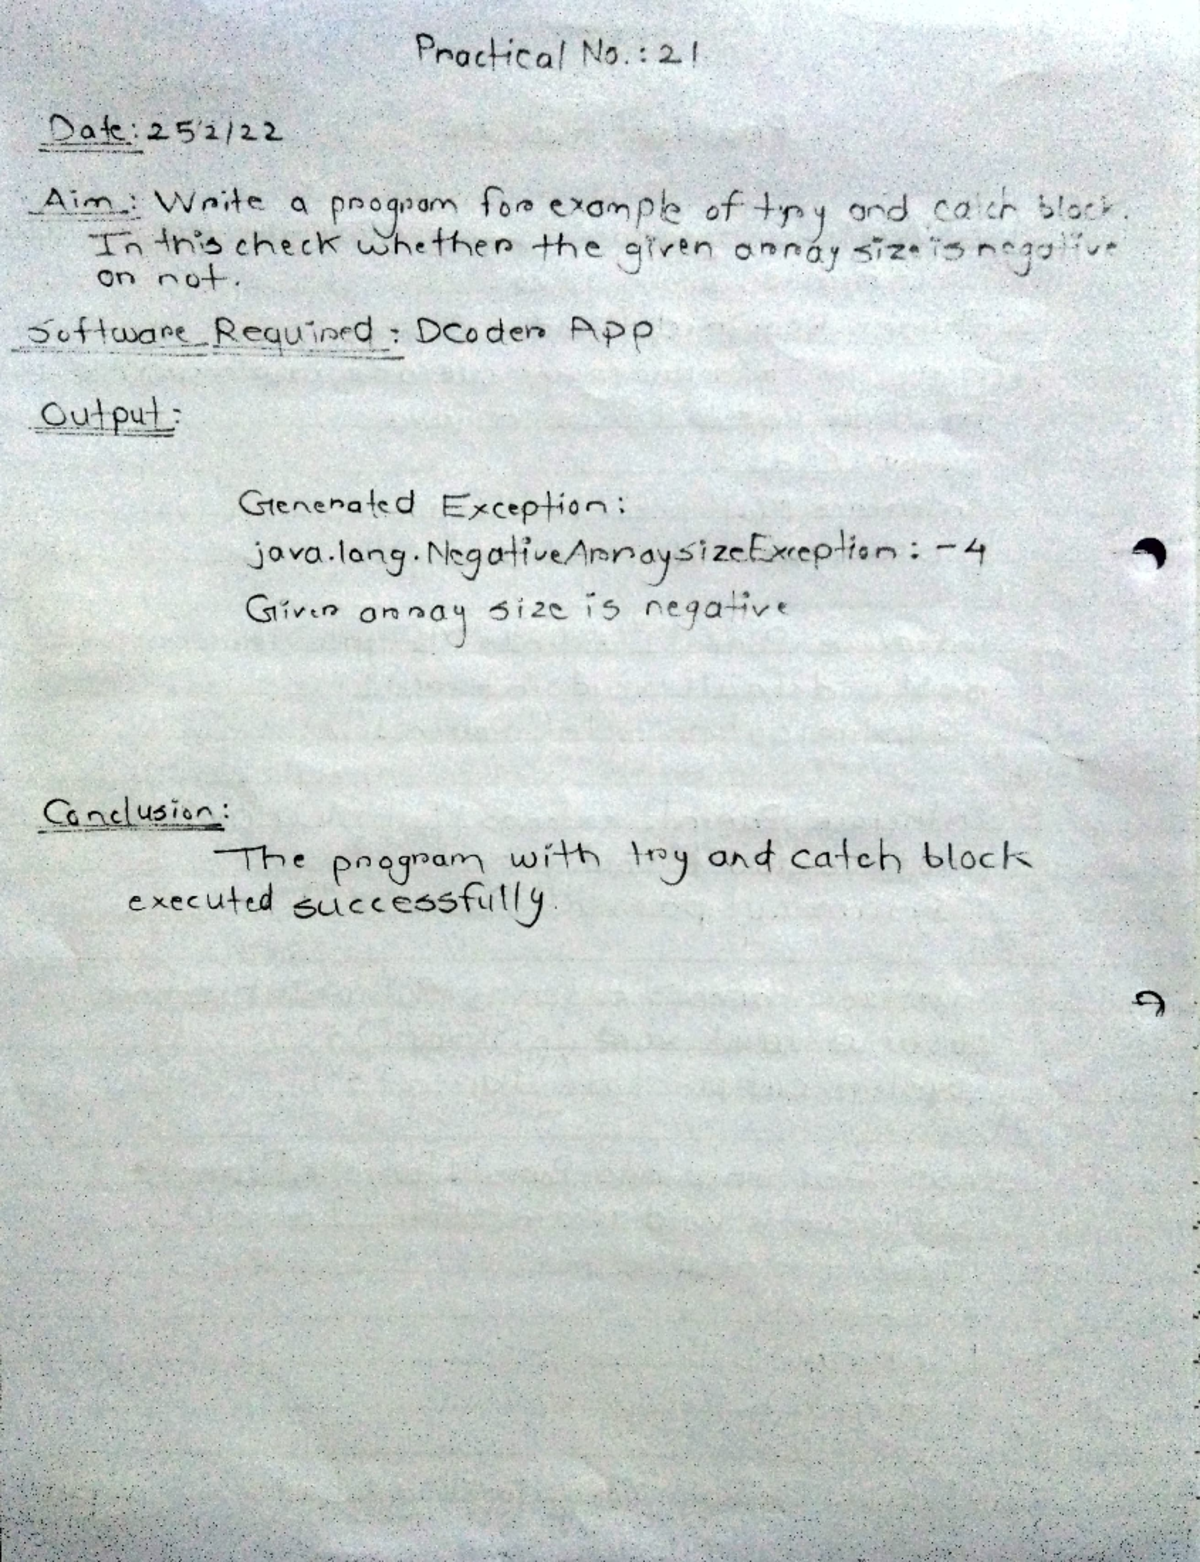 Practical No.: 21
Date: 25/2/22
Aim: Write a program for example of try and catch block.
In this check whether the given array size is negative
or not.
Software Required: DCoder App
Output:
Generated Exception:
java.lang.NegativeArraysizeException: -4
Given array size is negative
Conclusion:
The program with try and catch block
executed successfully.